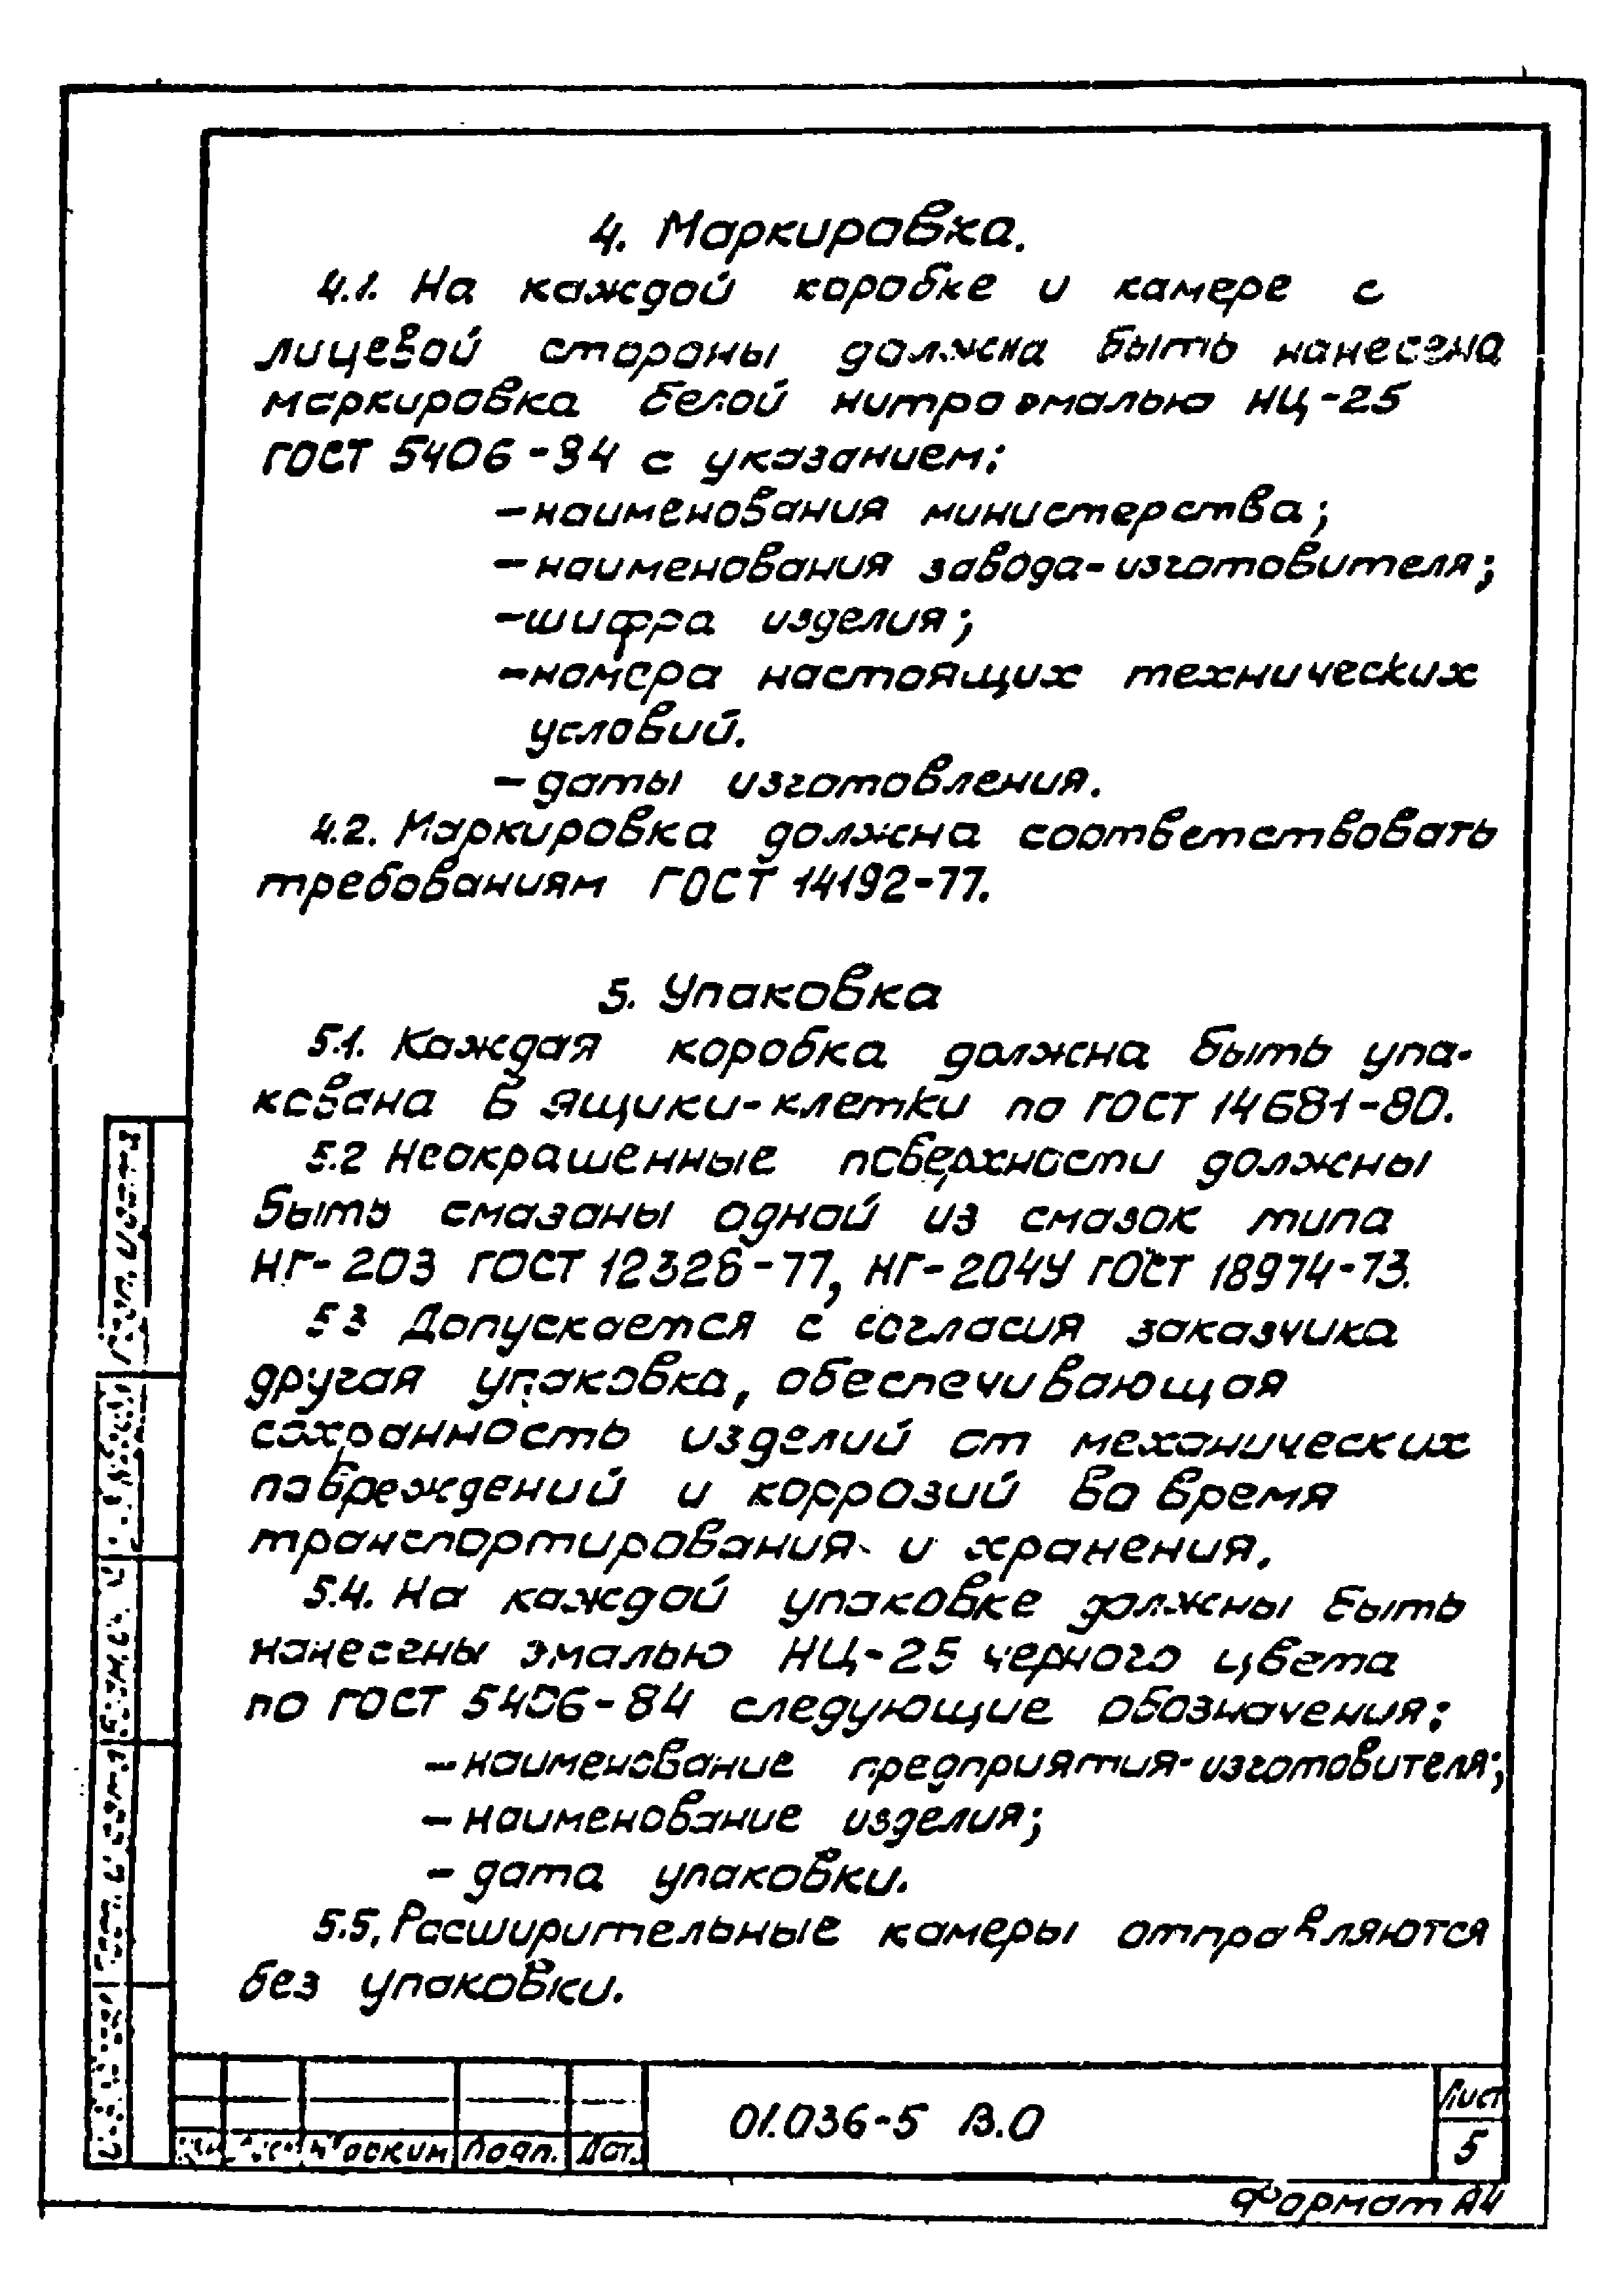 4. Маркировка.
4.1. На каждой коробке и камере с
лицевой стороны должна быть нанесена
маркировка белой нитроэмалью НЦ-25
ГОСТ 5406-84 с указанием:
-наименования министерства;
-наименования завода-изготовителя;
-шифра изделия;
-номера настоящих технических
условий.
-даты изготовления.
4.2. Маркировка должна соответствовать
требованиям ГОСТ 14192-77.
5. Упаковка
5.1. Каждая коробка должна быть упа-
кована в ящики-клетки по ГОСТ 14681-80.
5.2 Неокрашенные поверхности должны
быть смазаны одной из смазок типа
НГ-203 ГОСТ 12328-77, НГ-204У ГОСТ 18974-73.
5 3 Допускается с согласия заказчика
другая упаковка, обеспечивающая
сохранность изделий от механических
повреждений и коррозий во время
транспортирования и хранения.
5.4. На каждой упаковке должны быть
нанесены эмалью НЦ-25 черного цвета
по ГОСТ 5406-84 следующие обозначения:
-наименование предприятия-изготовителя;
- наименование изделия;
- дата упаковки.
5.5. Расширительные камеры отправляются
без упаковки.
01.036-5 В.О
Лист
Подп. Дат.
5
Формат А4